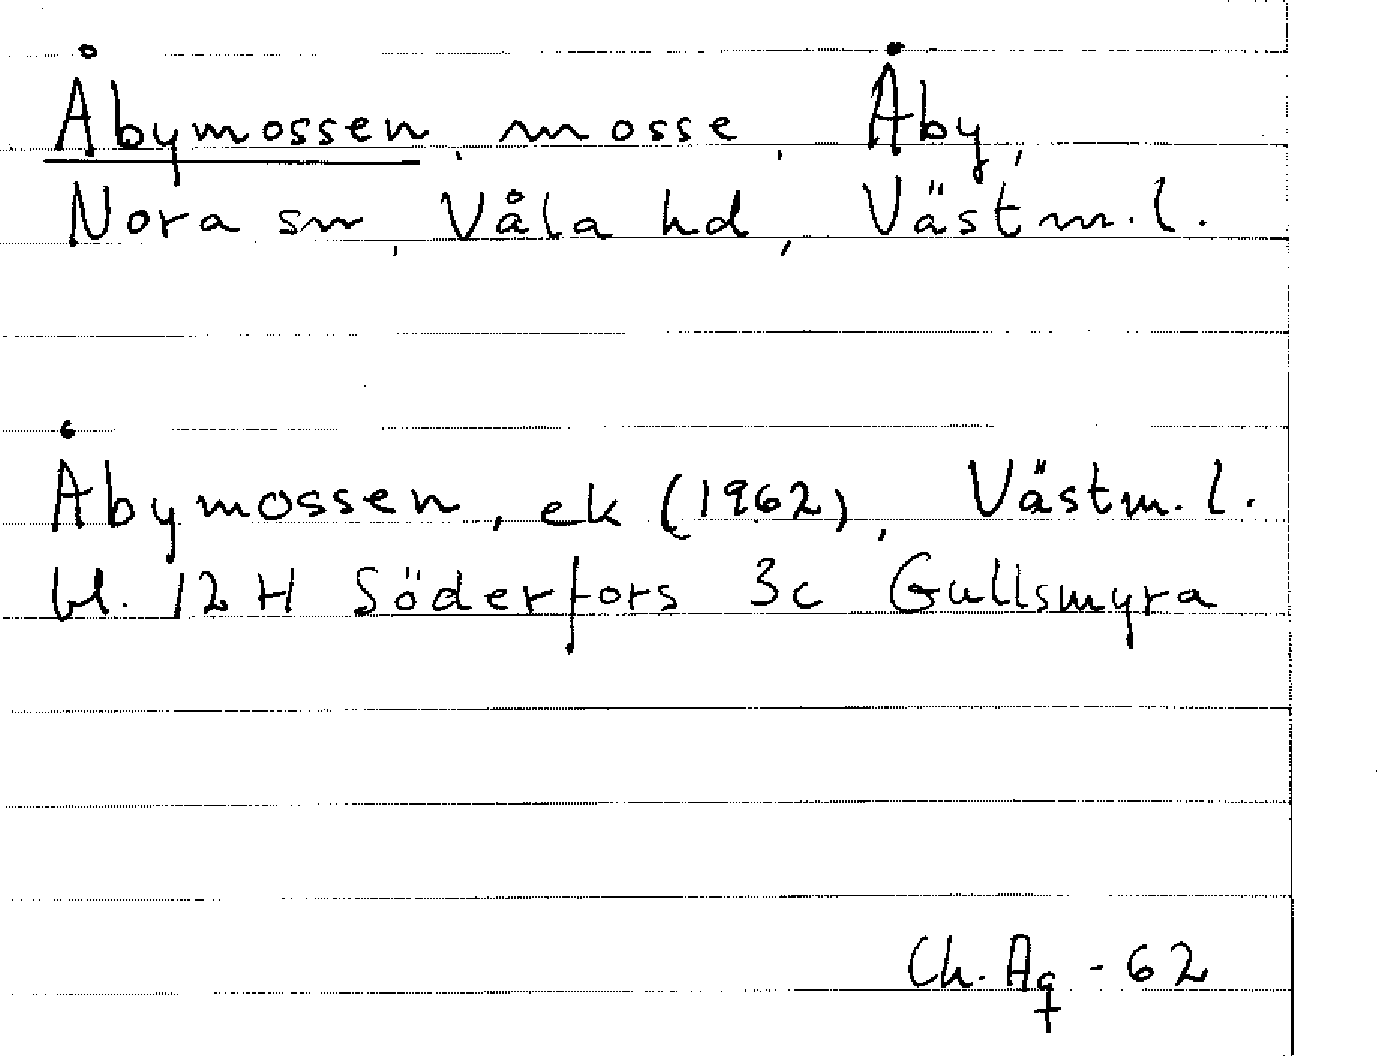 Åbymossen, mosse, Åby,
Nora sn, Våla hd, Västm. l.
Åbymossen, ek (1962), Västm. l.
bl. 12 H Söderfors 3c Gullsmyra
Ch. Aq - 62